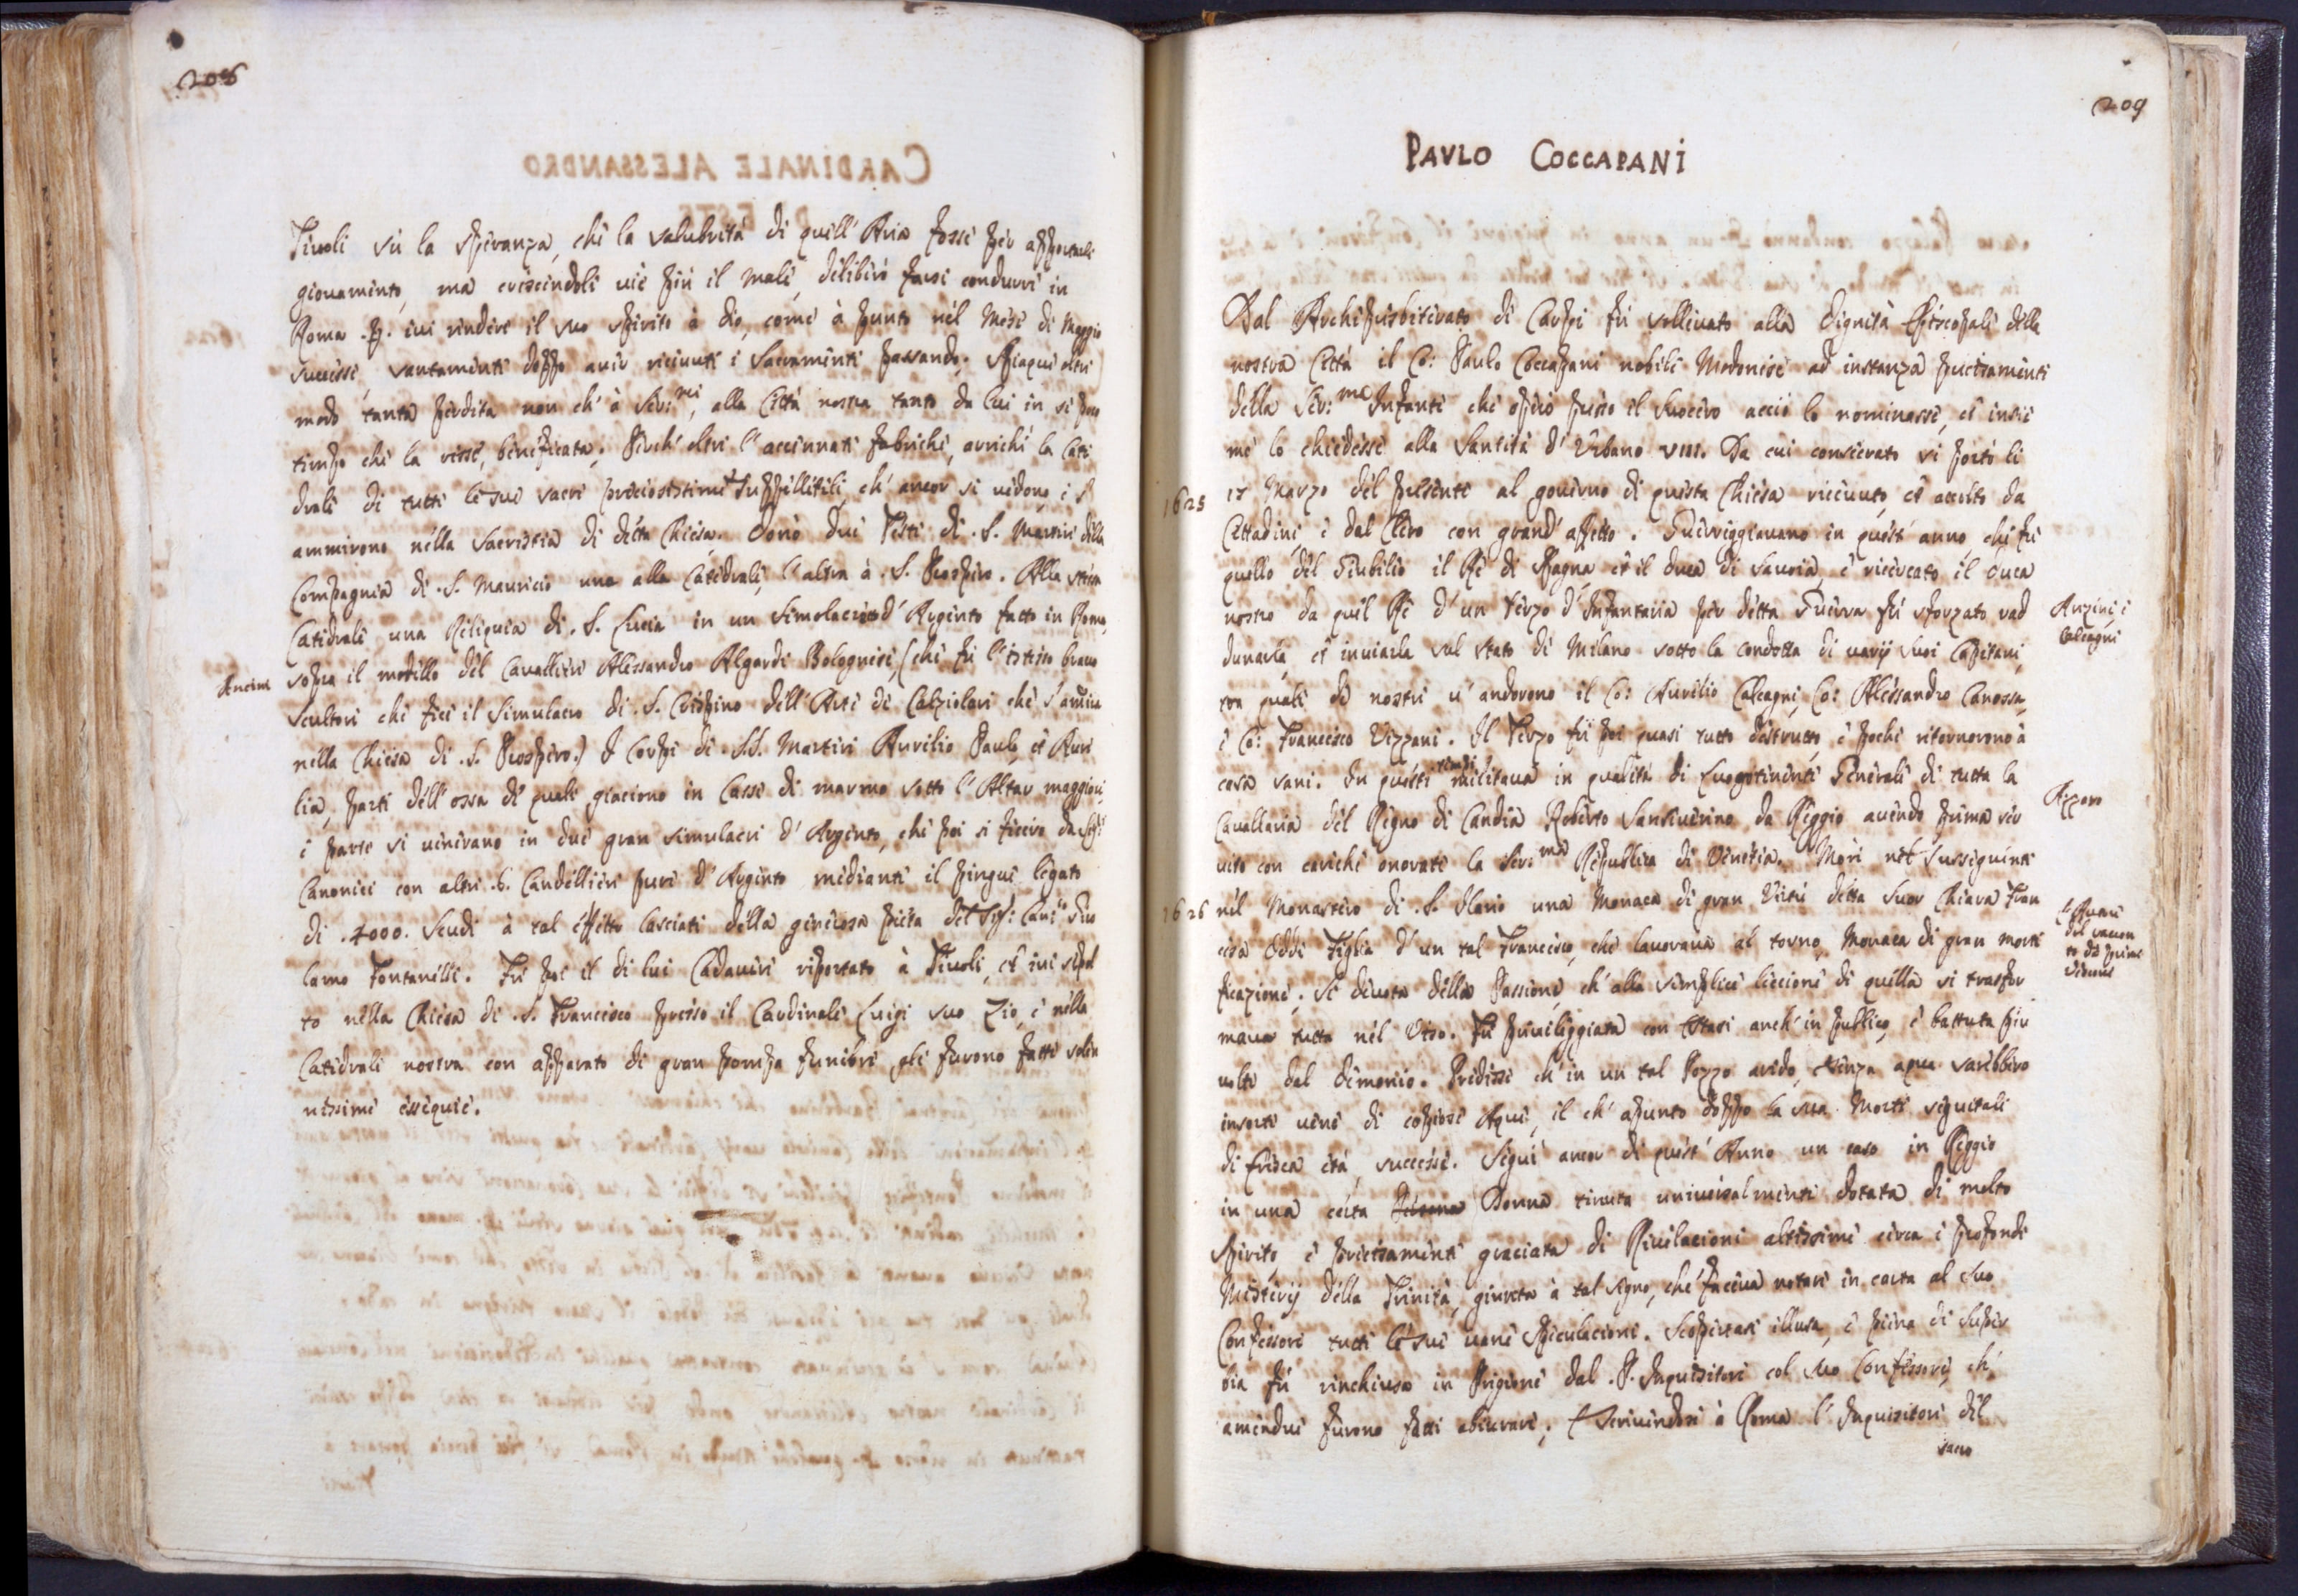 208
Tivoli sù la speranza, che la salubrità di quell'Aria fosse per apportarli
giovamento, mà crescendoli vie più il male, deliberò farsi condurre in
Roma .p. ivi rendere il suo spirito à Dio, come à punto nel Mese di Maggio
successe, santamente doppo aver ricevuti i Sacramenti passando. Spiaque oltre
modo tanta perdita non ch'à Ser:mi, alla Città nostra tanto da lui in sì poco
tempo che la resse, beneficata. Perch'oltre l'accennate fabriche, arrichì la Cate
drale di tutti le sue sacre preciosissime Suppellitili, ch'ancor si vedono, e s'
ammirono nella Sacristia di detta Chiesa. Donò due Teste di .S. Martiri della
Compagnia di .S. Mauricio una alla Catedrale, l'altra à .S. Prospero. Alla stessa
Catedrale una Reliquia di .S. Lucia in un Simolacro d'Argento fatto in Roma,
Ancini
sopra il modello del Cavalliere Alessandro Algardi Bolognese, (che fù l'istesso bravo
Scultore che fece il Simulacro di .S. Crispino dell'Arte di Calziolari che s'amira
nella Chiesa di .S. Prospero.) I Corpi di .SS. Martiri Aurelio Paulo, et Aure
lia, parte dell'ossa de quali giaciono in Casse di marmo sotto l'Altar maggiore,
e parte si venerano in due gran simulacri d'Argento, che poi si fecero da Sig:ri
Canonici con altri .6. Candellieri pure d'Argento mediante il pingue legato
di .4000. Scudi à tal effetto lasciati della generosa pietà del Sig: Cani:co Giro
lamo Fontanelli. Fù poi il di lui Cadavere riportato à Tivoli, et ivi sepol
to nella Chiesa di .S. Francesco presso il Cardinale Luigi suo Zio, e nella
Catedrale nostra con apparato di gran pompa funebre gli furono fatti solen
nissime essequie.
209
PAVLO COCCAPANI
Dal Archipresbiterato di Carpi fù sollevato alla Dignità Episcopale della
nostra Città il Co: Paulo Coccapani nobile Modonese ad instanza precisamente
della Ser:ma Infante che oprò presso il Suocero acciò lo nominasse, et insie
me lo chiedesse alla Santità d'Urbano VIII. Da cui consecrato si portò li
1625
Marzo del presente al governo di questa Chiesa ricevuto, et accolto da
Cittadini, e dal Clero con grand'affetto. Guerreggiavano in quest'anno che fù
quello del Giubileo il Rè di Spagna et il Duca di Savoia, e ricercato il Duca
nostro da quel Rè d'un Terzo d'Infantaria per detta Guerra fù sforzato rad
Anzini, e
Calcagni
dunarla, et inviarla sul stato di Milano sotto la condotta di varij suoi Capitani,
con quali de nostri v'andorono il Co: Aurelio Calcagni, Co: Alessandro Canossa,
e Co: Francesco Vezzani. Il Terzo fù poi quasi tutto destrutto, e pochi ritornorono à
casa sani. In questi tempi militava in qualità di Luogotenente Generale di tutta la
Azzari
Cavallaria del Regno di Candia Roberto Sanseverino da Reggio avendo prima ser
vito con cariche onorate la Ser:ma Republica di Venetia. Morì nel sussiguente
1626
nel Monastero di .S. Ilario una Monaca di gran Virtù detta Suor Chiara Fran
L'Autore
del raccon
to dà prime
cesca Oddi Figlia d'un tal Francesco, che lavorava al torno, Monaca di gran morti
ficazione. Sì divota della Passione, ch'alla semplice liccione di quella si trasfor
mava tutta nel Viso. Fù priveleggiata con Estasi anch'in publico, e battuta più
volte dal Demonio. Predisse ch'in un tal Pozzo arido, e senza aqua sarebbero
insorte vene di copiose Aque, il ch'apunto doppo la sua Morte seguitale
di fresca età, successe. Seguì ancor di quest'Anno un caso in Reggio
in una certa Donna tenuta universalmente dotata di molto
Spirito, e precisamente graciata di Rivelacioni altissime circa i profondi
Misterij della Trinità, giunta à tal segno, che faceva notare in carta al Suo
Confessore tutte le sue vane Speculacioni. Scopertasi illusa, e piena di Super
bia fù rinchiusa in Prigione dal .P. Inquisitore col Suo Confessore, ch'
amendue furono fatti abiurare. E Scrivendosi à Roma l'Inquisitore del
sacro